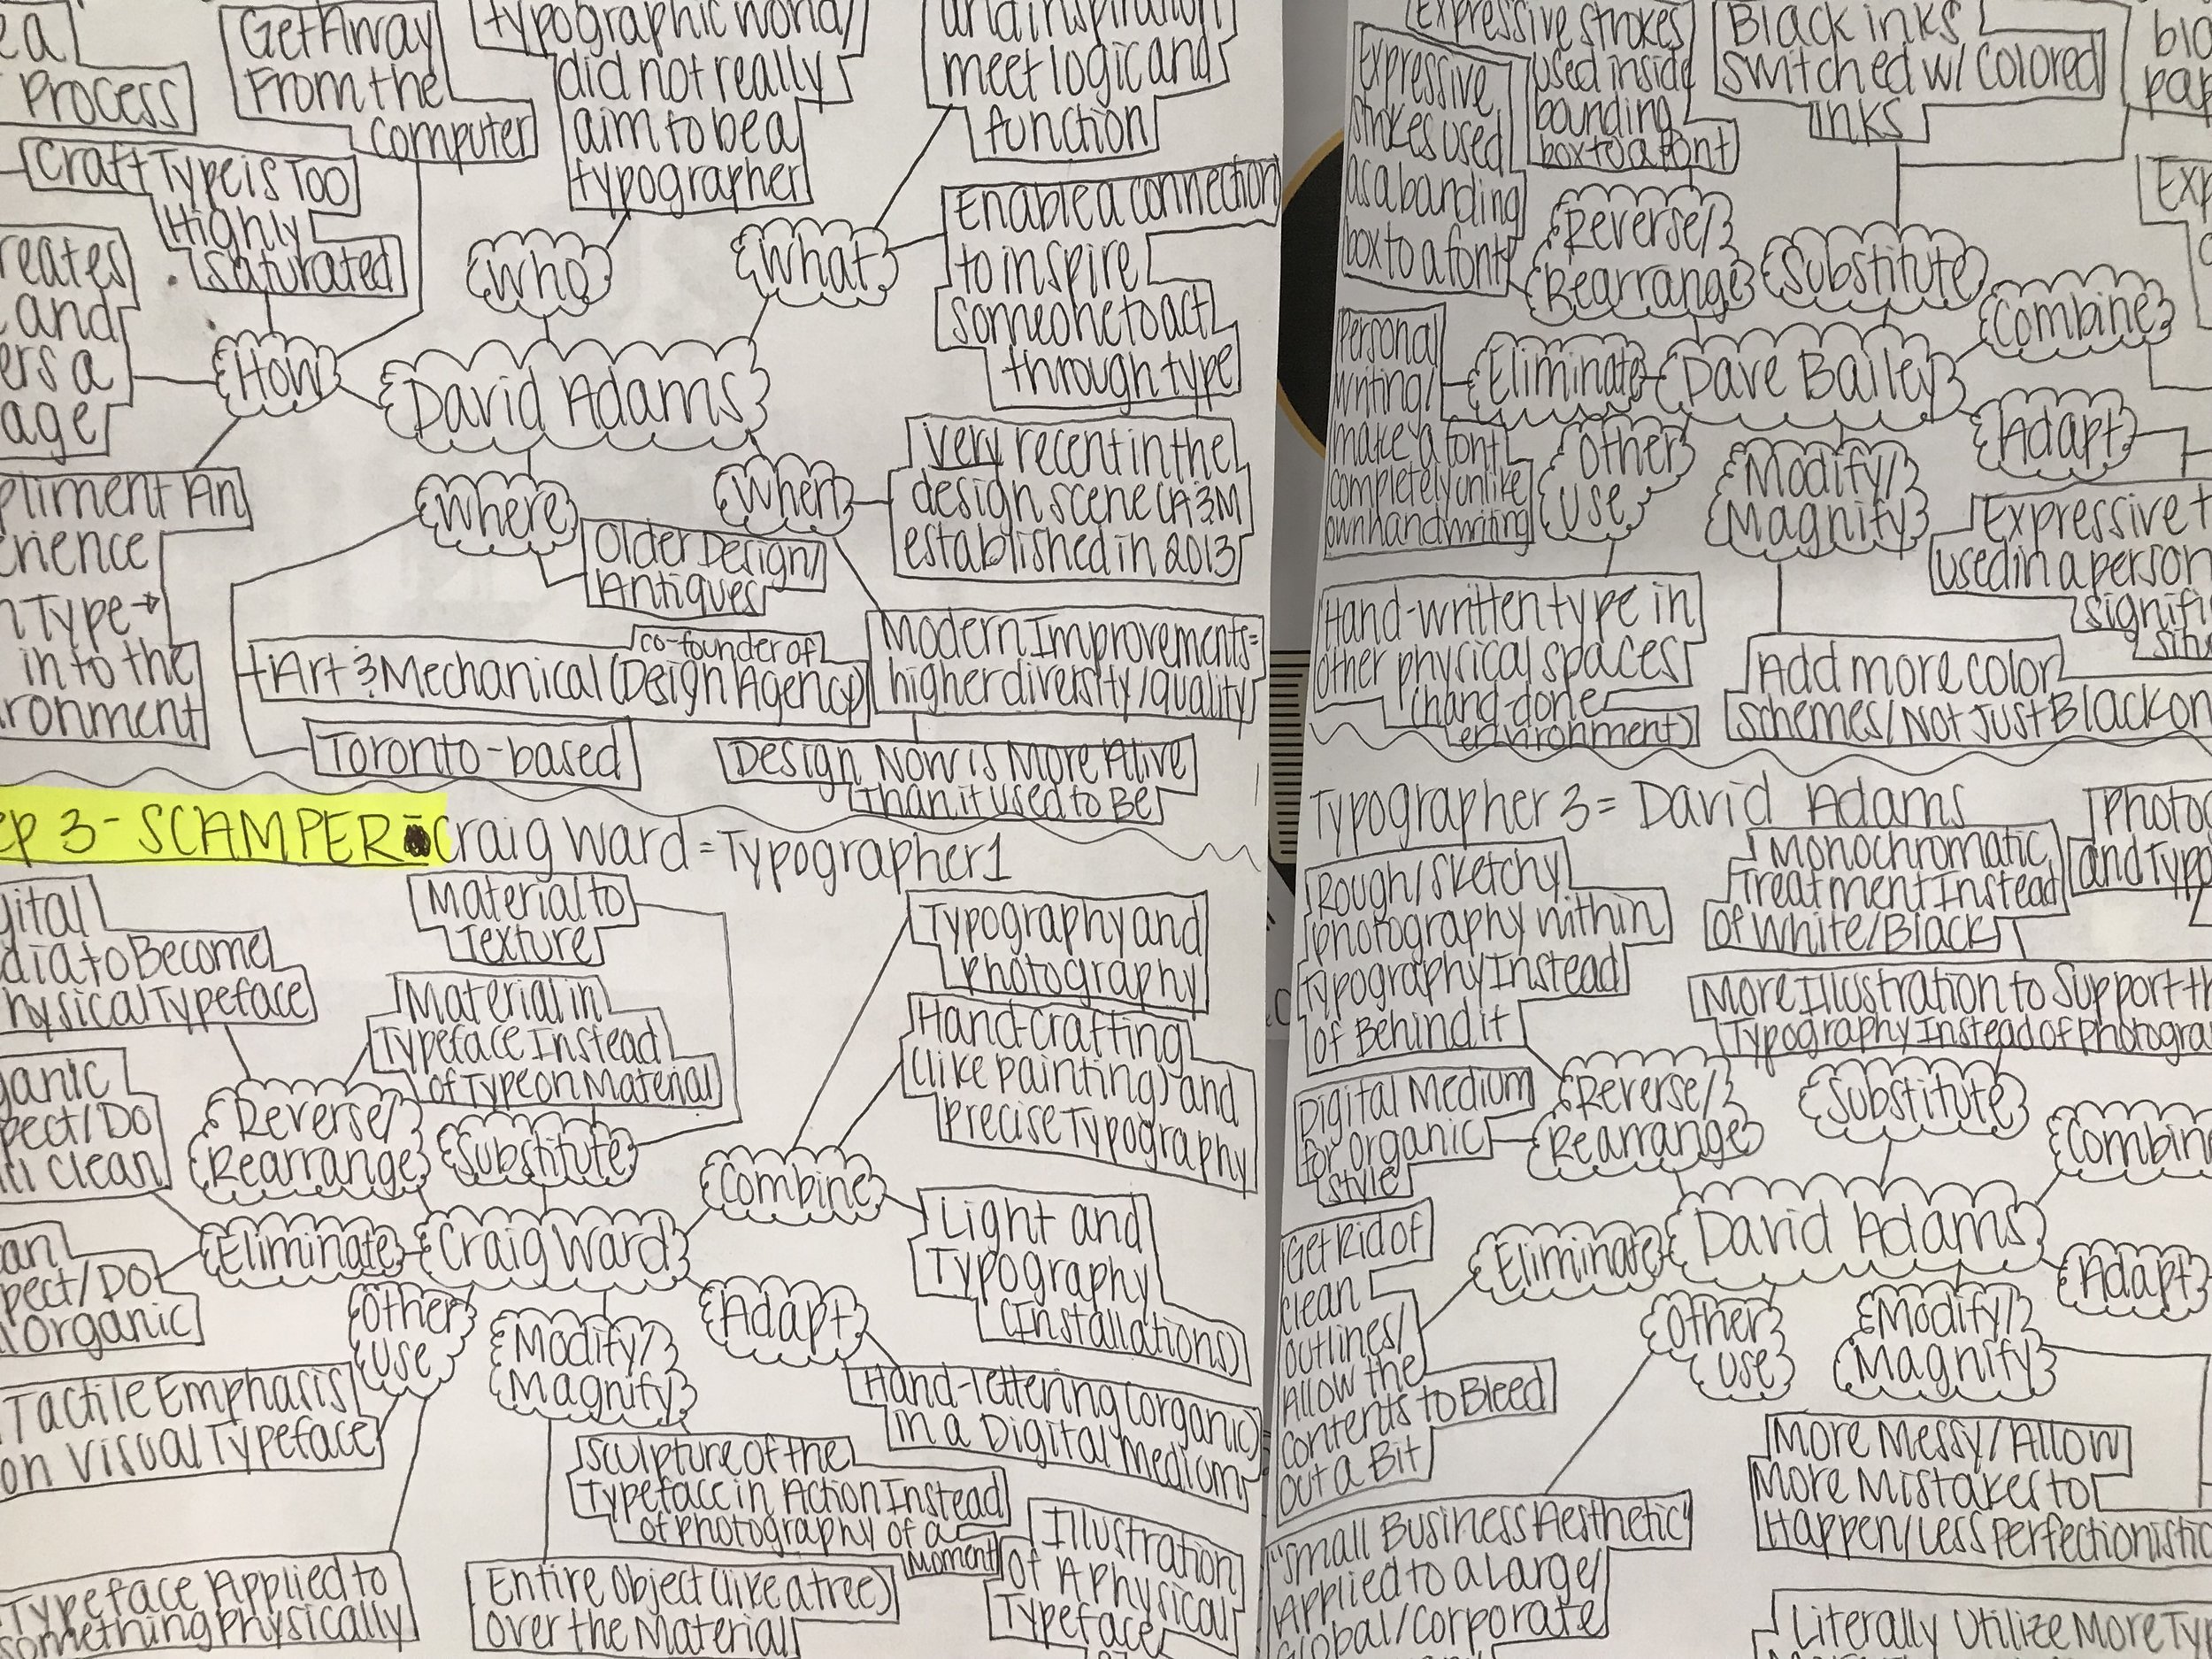 ea
Process
Get Away
From the
Computer
typographic world/
did not really
aim to be a
typographer
and inspiration
meet logic and
function
Craft Type is Too
Highly
Saturated
Who
What
Enable a connection
to inspire
someone to act
through type
reates
and
ers a
age
How
David Adams
Where
When
Very recent in the
design scene (A&M
established in 2013)
eriment An
erience
Type→
in to the
ronment
Older Design/
Antiques
co-founder of
Art & Mechanical (Design Agency)
Toronto-based
Modern Improvements=
higher diversity/quality
Design Now is More Alive
Than it used to Be
ep 3 - SCAMPER - Craig Ward = Typographer 1
gital
dia to Become
hysical Typeface
Material to
Texture
Material in
Typeface Instead
of Type on Material
Typography and
Photography
Hand-Crafting
(like painting) and
Precise Typography
ganic
pect/Do
Clean
Reverse/
Rearrange
Substitute
Combine
Light and
Typography
(Installations)
an
pect/Do
Organic
Eliminate
Craig Ward
Other
Use
Modify/
Magnify
Adapt
Hand-lettering (organic)
in a Digital Medium
Tactile Emphasis
on Visual Typeface
Sculpture of the
Typeface in Action Instead
of photography of a
Moment
Typeface Applied to
something Physically
Entire Object (like a tree)
over the Material
Illustration
of A Physical
Typeface
Expressive
strokes used
as a banding
box to a font
Expressive strokes
used inside
bounding
box to a font
Black inks
switched w/ Colored
inks
bla
pap
Exp
Reverse/
Rearrange
Substitute
Combine
Personal
writing/
make a font
completely unlike
own handwriting
Eliminate
Dave Bailey
Other
Use
Modify/
Magnify
Adapt
Expressive t
used in a person
signifi
Hand-written type in
other physical spaces
(hand-done
environment)
Add more color
schemes/Not Just Black on
Typographer 3 = David Adams
Rough/Sketchy
photography within
Typography Instead
of Behind it
Monochromatic
Treatment Instead
of White/Black
Photog
and Typo
More Illustration to Support th
Typography Instead of Photogra
Digital Medium
for organic
style
Reverse/
Rearrange
Substitute
Combine
Get Rid of
Clean
outlines/
Allow the
contents to Bleed
out a Bit
Eliminate
David Adams
Adapt
Other
Use
Modify/
Magnify
"Small Business Aesthetic"
Applied to a Large/
Global/Corporate
More Messy/Allow
More Mistakes to
Happen/Less Perfectionistic
Literally Utilize More Typ